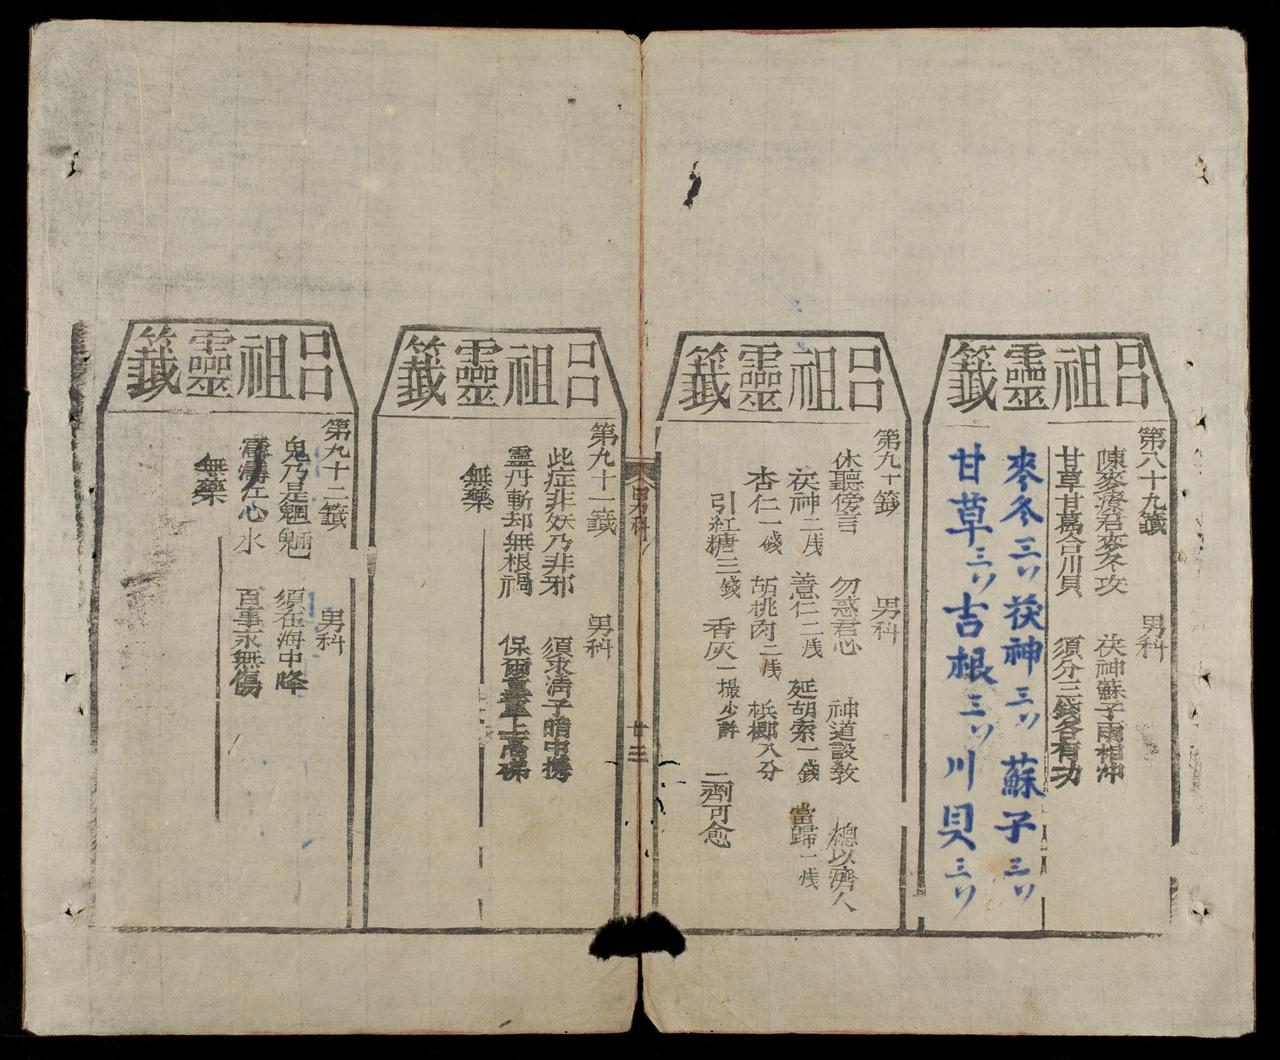 呂祖靈籤
第八十九籤 男科
陳麥療君麥冬攻 茯神蘇子兩相冲
甘草甘葛合川貝 須分三錢各有功
麥冬三 茯神三 蘇子三
甘草三 吉根三 川貝三
呂祖靈籤
第九十籤 男科
休聽傍言 勿惑君心 神道設教 總以濟人
茯神二戋 薏仁二戋 延胡索一錢 當歸一戋
杏仁一錢 胡桃肉二戋 梹榔八分
引紅糖三錢 香灰一撮少許 二劑可愈
男科
廿三
呂祖靈籤
第九十一籤 男科
此症非妖乃非邪 須求清子暗中
靈丹斬却無根禍 保爾上高
無藥
呂祖靈籤
第九十二籤 男科
鬼乃是魍魎 須在海中降
在心水 百事永無傷
無藥